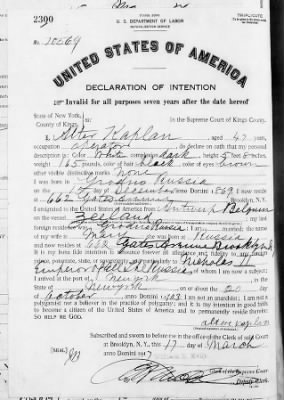 TRIPLICATE
U. S. DEPARTMENT OF LABOR
NATURALIZATION SERVICE
2300
No. 20569
UNITED STATES OF AMERICA
DECLARATION OF INTENTION
Invalid for all purposes seven years after the date hereof
State of New York,
County of Kings,
In the Supreme Court of Kings County.
I, Alter Kaplan, aged 47 years,
occupation operator, do declare on oath that my personal
description is: Color White, complexion dark, height 5 feet 8 inches,
weight 165 pounds, color of hair black, color of eyes brown
other visible distinctive marks none
I was born in Grodno Russia
on the 15 day of December, anno Domini 1869; I now reside
at 662 Gates Avenue
I emigrated to the United States of America from Antwerp Belgium
on the vessel Zeeland; my last
foreign residence was Grodno Russia
was born in Russia
and now resides at 662 Gates Avenue Brooklyn
It is my bona fide intention to renounce forever all allegiance and fidelity to any foreign
prince, potentate, state, or sovereignty, and particularly to Nicholas II
Emperor of all the Russias, of whom I am now a subject;
I arrived at the port of New York, in the
State of New York, on or about the 20 day
of October, anno Domini 1903; I am not an anarchist; I am not a
polygamist nor a believer in the practice of polygamy; and it is my intention in good faith
to become a citizen of the United States of America and to permanently reside therein:
SO HELP ME GOD.
Subscribed and sworn to before me in the office of the Clerk of said Court
at Brooklyn, N. Y., this 17 day of March
anno Domini 1917
[SEAL]
Clerk of the Supreme Court.
Deputy Clerk.